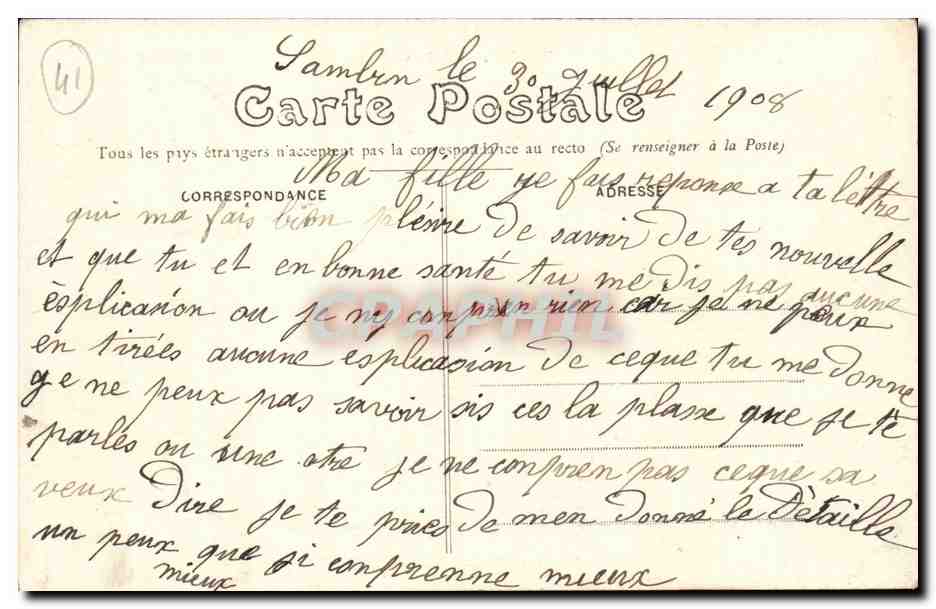 41
Sambin le 30 Juillet 1908
Carte Postale
Tous les pays étrangers n'acceptent pas la correspondance au recto (Se renseigner à la Poste)
CORRESPONDANCE
ADRESSE
Ma fille je fais reponse a ta léttre
qui ma fais bien plésire de savoir de tes nouvelle
et que tu et en bonne santé tu me dis pas aucune
èsplication ou je ny conpren rien car je ne peux
en tirées aucune esplicasion de ceque tu me donne
ge ne peux pas savoir sis ces la plasse que je te
parles ou une otre je ne conpren pas ceque sa
veux Dire je te pries de men donné le Dètaille
un peux que ji conprenne mieux
mieux
CPAPHIL